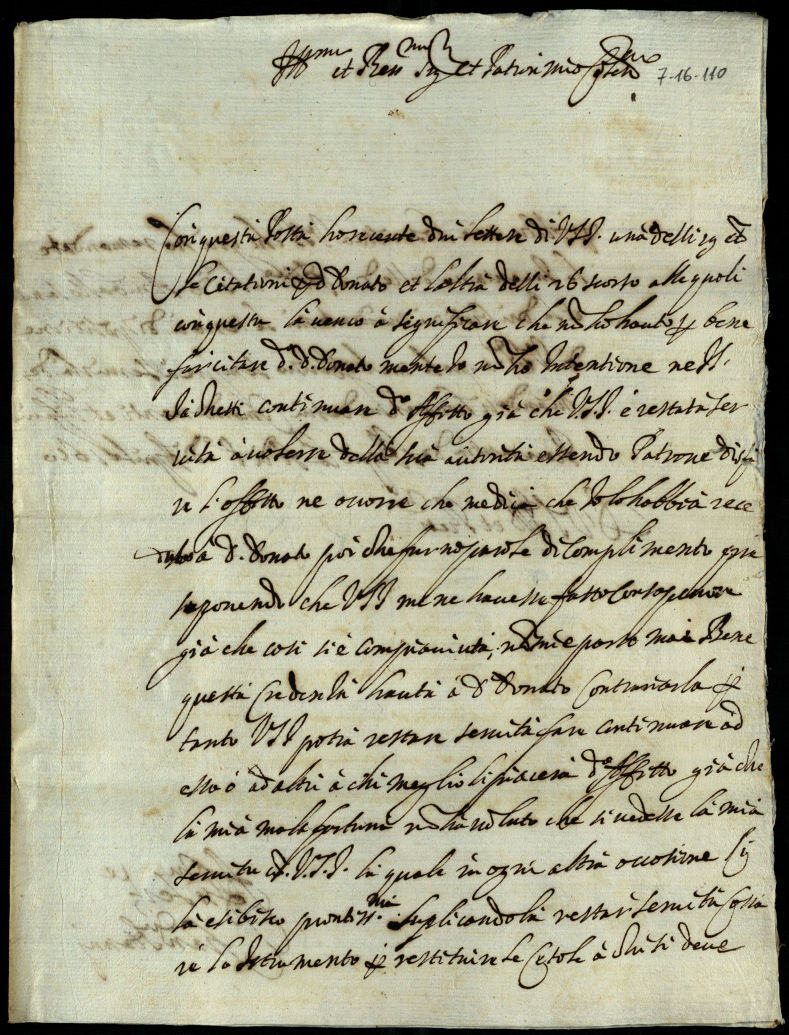 Ill.mo et Rev.mo Sig.r et Patron mio Col.mo
7-16-110
Con questa Posta ho receute dui lettere di VSI. una delli 19 et
le citationi p d. Donato et l'altra delli 26 scorso alle quali
con questa la vengo à significare che nō ho hauto p bene
far citare d.o d. Donato mentre Io nō ho Intentione ne
continuare d.o Affitto già che VSI. è restata ser
uita à uolerse della sua autorità essendo Patrone di
re l'affitto ne occorre che me dica che Io lo habbia rece
duto à d. Donato poi che furno parole di Complimento pre
suponendo che VSI me ne hauesse fatto
già che cosi si è compiaciuta, nō mi è parso mai Bene
questa Credenza hauta à d. Donato Contrariarla p
tanto VSI potrà restare seruita fare continuare ad
esso ò ad altri à chi meglio li piacerà d.o Affitto già che
la mia mala fortuna nō hà uoluto che si uedesse la mia
seruitu à VSI. la quale in ogni altra occasione li
la esibisco prontiss.ma suplicandola restar seruita
re lo Istrumento p restituire le Cetole à chi si deue